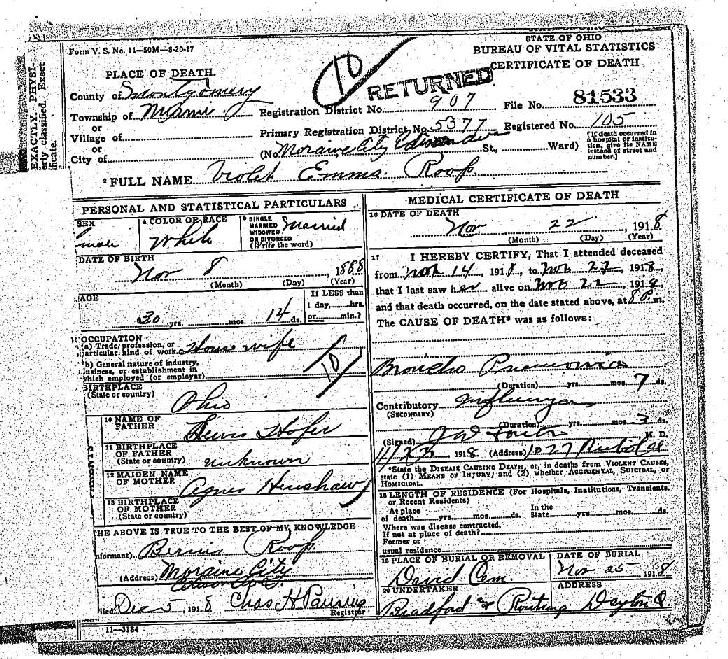 Form V. S. No. 11—50M—8-20-17
STATE OF OHIO
BUREAU OF VITAL STATISTICS
CERTIFICATE OF DEATH
PLACE OF DEATH
10
RETURNED
County of Montgomery
Township of Miami
Registration District No. 907
File No. 81533
or
Village of
Primary Registration District No. 5377
Registered No. 105
or
City of
(No. Moraine City St., Ward)
(If death occurred in a hospital or institution, give its NAME instead of street and number.)
FULL NAME Violet Emma Roof
PERSONAL AND STATISTICAL PARTICULARS
MEDICAL CERTIFICATE OF DEATH
SEX
COLOR OR RACE White
SINGLE MARRIED WIDOWED OR DIVORCED (Write the word) Married
DATE OF DEATH
Nov 22 1918
(Month) (Day) (Year)
DATE OF BIRTH
Nov 8 1888
(Month) (Day) (Year)
I HEREBY CERTIFY, That I attended deceased
from Nov 14 1918, to Nov 22 1918,
that I last saw her alive on Nov 22 1918
and that death occurred, on the date stated above, at m.
The CAUSE OF DEATH* was as follows:
AGE
30 yrs. mos. 14 ds.
If LESS than 1 day, hrs. or min.?
OCCUPATION
(a) Trade, profession, or particular kind of work House wife
(b) General nature of industry, business, or establishment in which employed (or employer)
10
Broncho Pneumonia
(Duration) yrs. mos. 7 ds.
BIRTHPLACE
(State or country)
Ohio
Contributory Influenza
(Secondary)
(Duration) yrs. mos. 3 ds.
NAME OF FATHER Lewis Hofer
(Signed) M. D.
1918 (Address)
BIRTHPLACE OF FATHER
(State or country) unknown
*State the DISEASE CAUSING DEATH, or, in deaths from VIOLENT CAUSES, state (1) MEANS OF INJURY; and (2) whether ACCIDENTAL, SUICIDAL, or HOMICIDAL.
MAIDEN NAME OF MOTHER Agnes Hinshaw
BIRTHPLACE OF MOTHER
(State or country)
LENGTH OF RESIDENCE (For Hospitals, Institutions, Transients, or Recent Residents)
At place of death yrs. mos. ds. In the State yrs. mos. ds.
Where was disease contracted, if not at place of death?
Former or usual residence
THE ABOVE IS TRUE TO THE BEST OF MY KNOWLEDGE
(Informant) Roof
(Address) Moraine City
PLACE OF BURIAL OR REMOVAL
David Cem
DATE OF BURIAL
Nov 25 1918
Filed Dec 5, 1918 Chas H
Registrar
UNDERTAKER
Bradford &
ADDRESS
Dayton O
11—3184